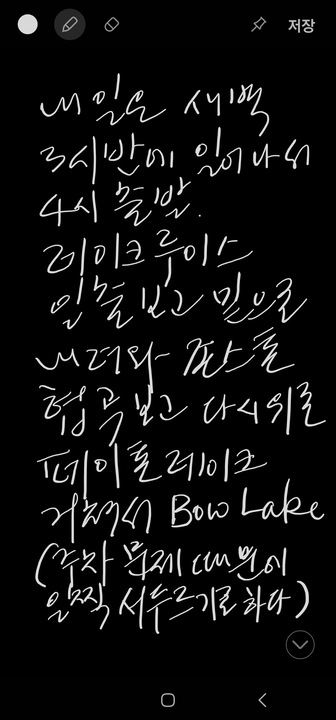 저장
내일은 새벽
3시반에 일어나서
4시 출발.
레이크루이스
일출 보고 밑으로
내려와 존스톤
협곡보고 다시위로
페이토레이크
거쳐서 Bow Lake
(주차 문제 때문에
일찍 서두르기로하다)